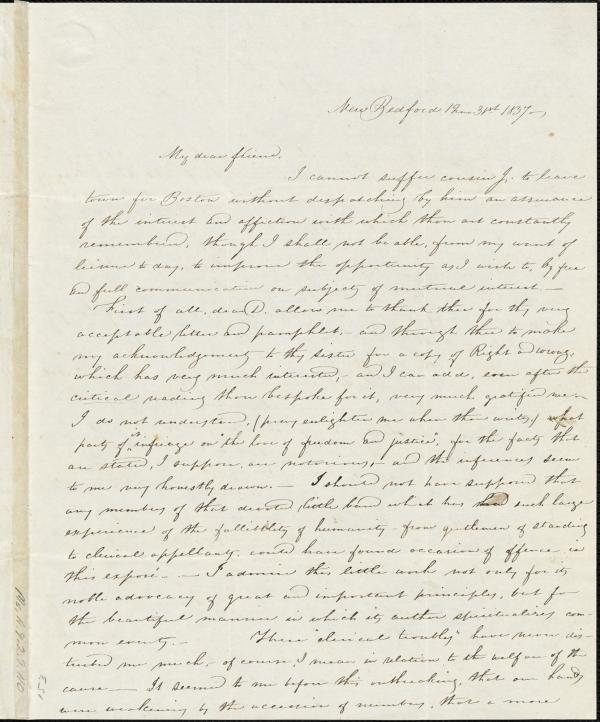 New Bedford 12mo 31st 1837
My dear friend.
I cannot suffer cousin J. to leave
town for Boston without despatching by him an assurance
of the interest and affection with which thou art constantly
remembered, though I shall not be able, from my want of
leisure to day, to improve the opportunity as I wish to, by free
and full communication on subjects of mutual interest —
First of all, dear D. allow me to thank thee for thy very
acceptable letter and pamphlet, and through thee to make
my acknowledgement to thy sister for a copy of Right and wrong,
which has very much interested, - and I can add, even after the
critical reading thou bespoke for it, very much gratified me -
I do not understand, (pray enlighten me when thou writes,) what
party of its infringe on "the love of freedom and justice", for the facts that
are stated, I suppose, are notorious, - and the inferences seem
to me very honestly drawn. - I should not have supposed that
any members of that devoted little band which has had such large
experience of the fallibility of humanity - from gentlemen of standing
to clerical appellants, could have found occasion of offence in
this exposé. - I admire this little work not only for its
noble advocacy of great and important principles, but for
the beautiful manner in which its author spiritualizes com-
mon events. - These "clerical troubles" have never dis-
tressed me much, - of course, I mean in relation to the welfare of the
cause - It seemed to me before this outbreaking, that our hands
were weakening by the accession of numbers, that a more
Ms.A.9.2.9.110